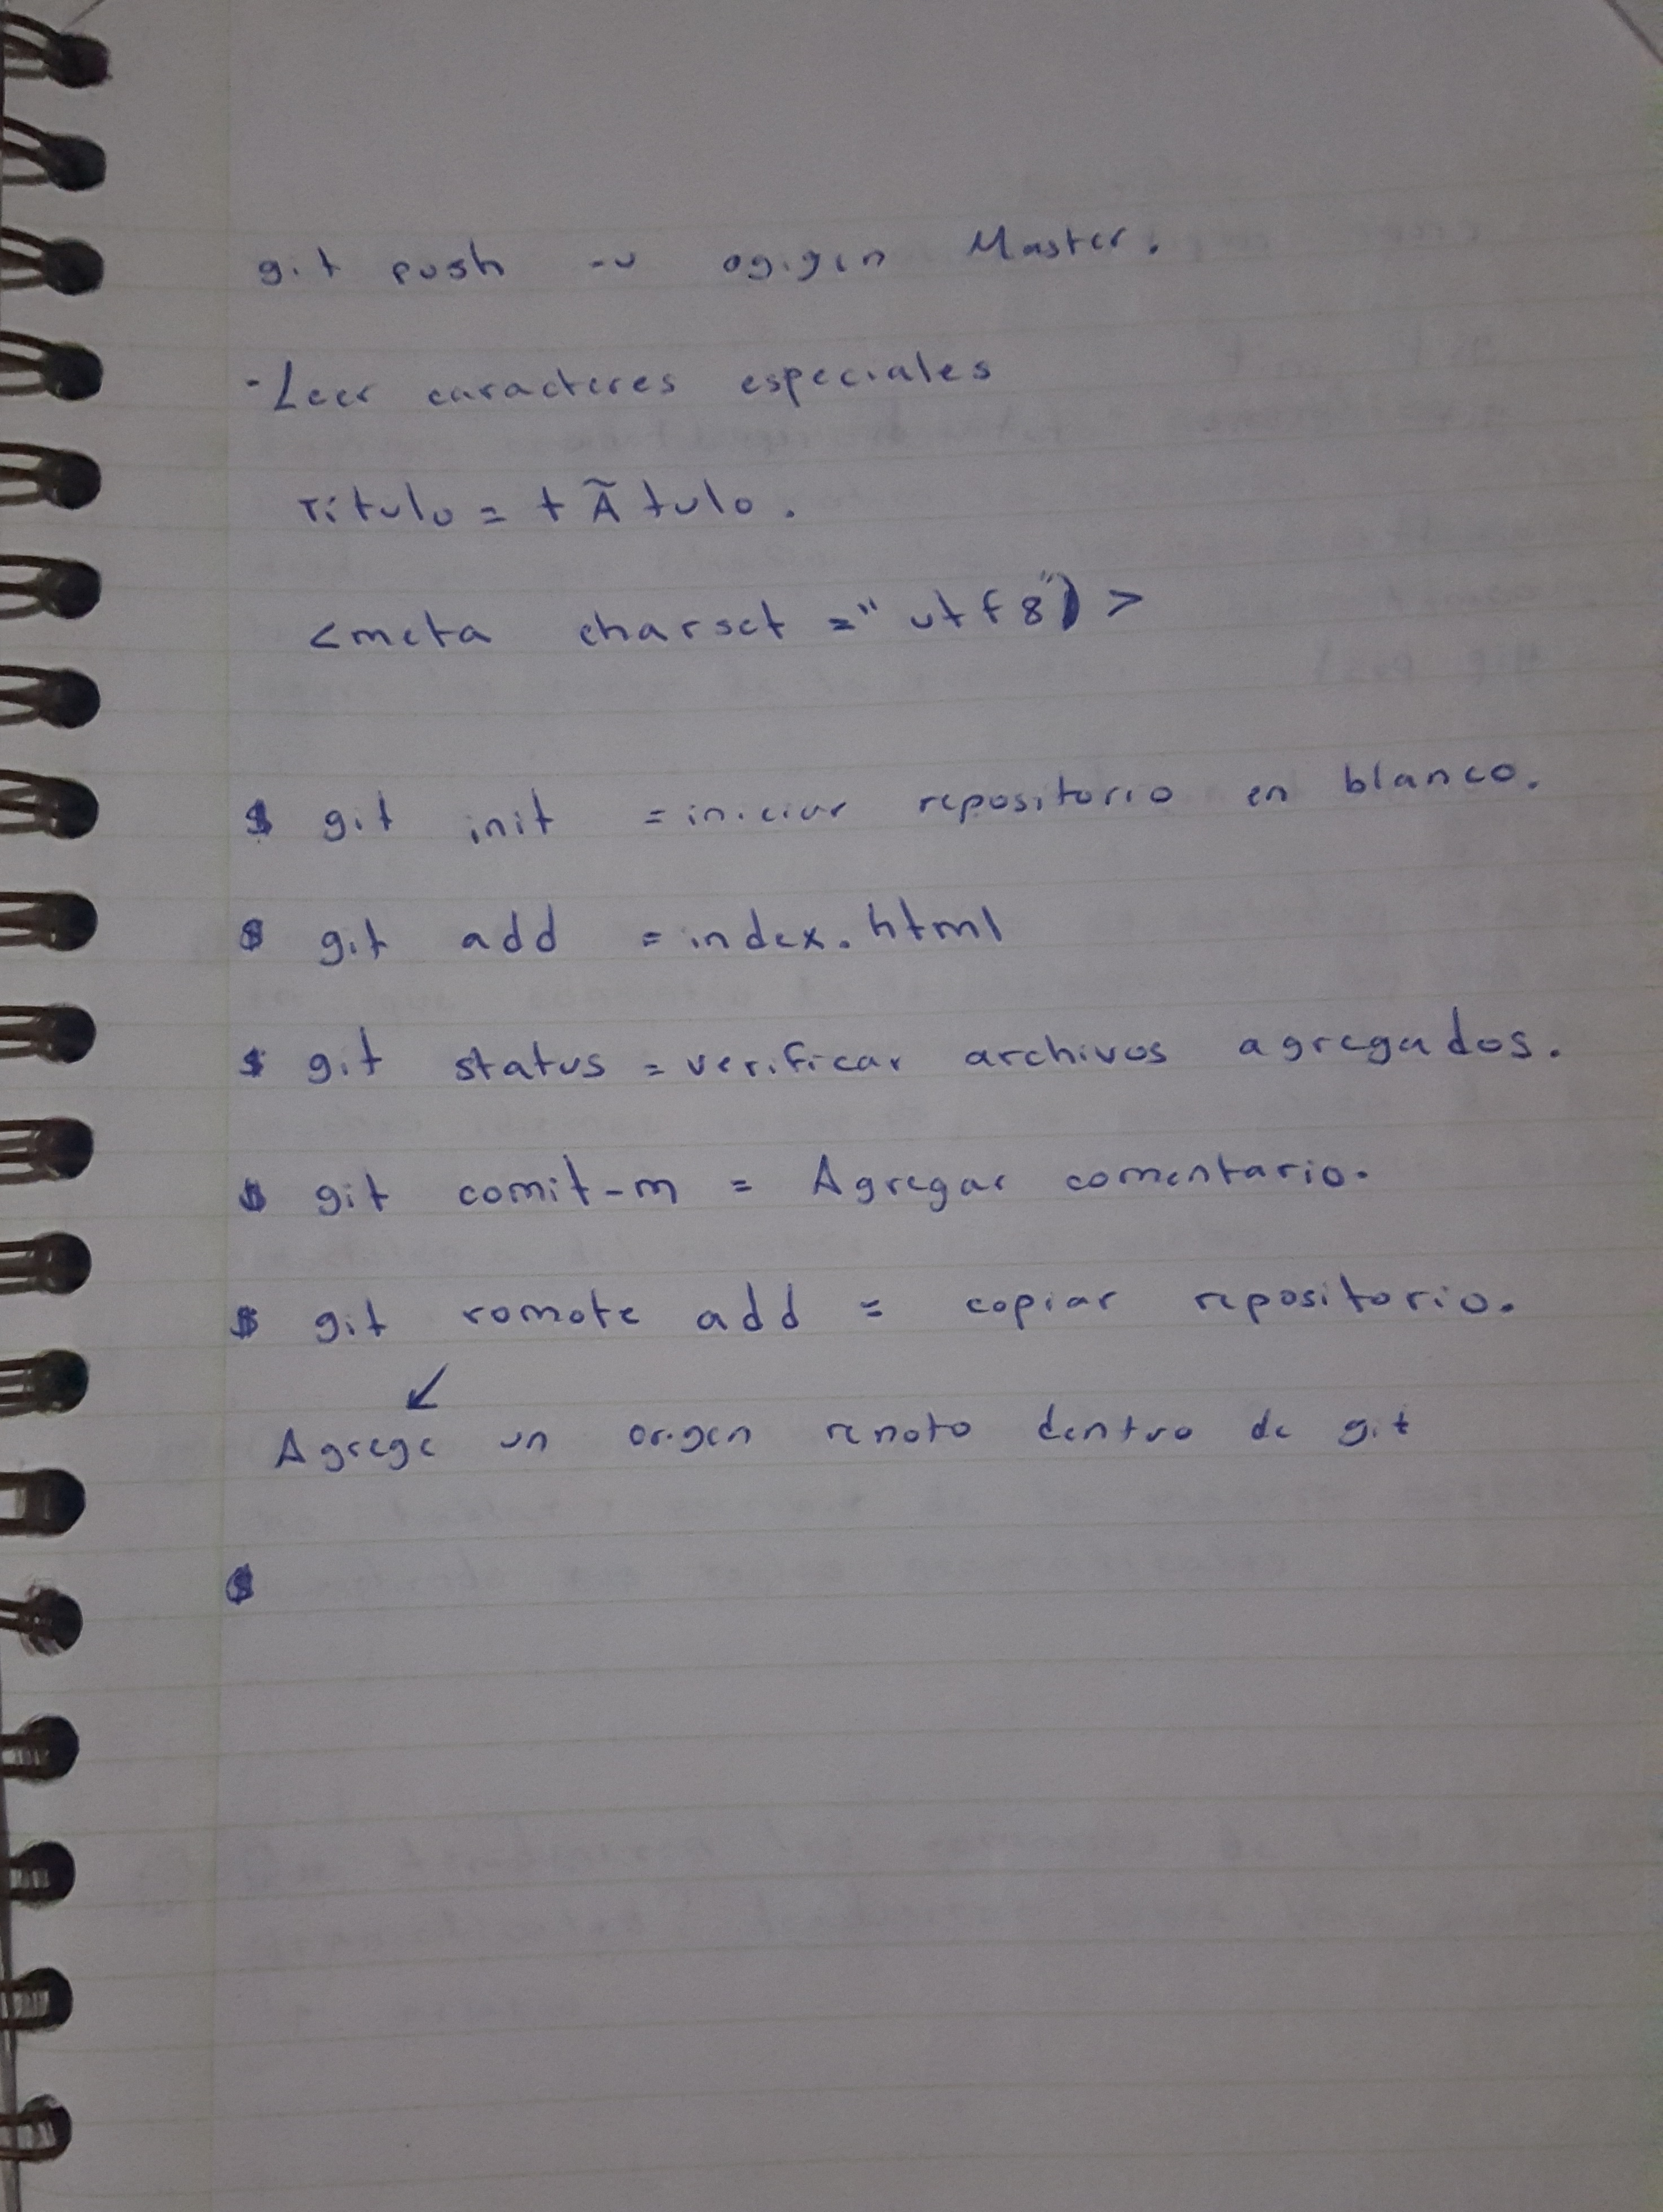 git push -u ogigen Master.
- Leer caracteres especiales
Título = tÃtulo.
<meta charset =" utf8")>
$ git init = iniciar repositorio en blanco.
$ git add = index.html
$ git status = verificar archivos agregados.
$ git comit-m = Agregar comentario.
$ git romote add = copiar repositorio.
↙
Agrege un origen remoto dentro de git
$